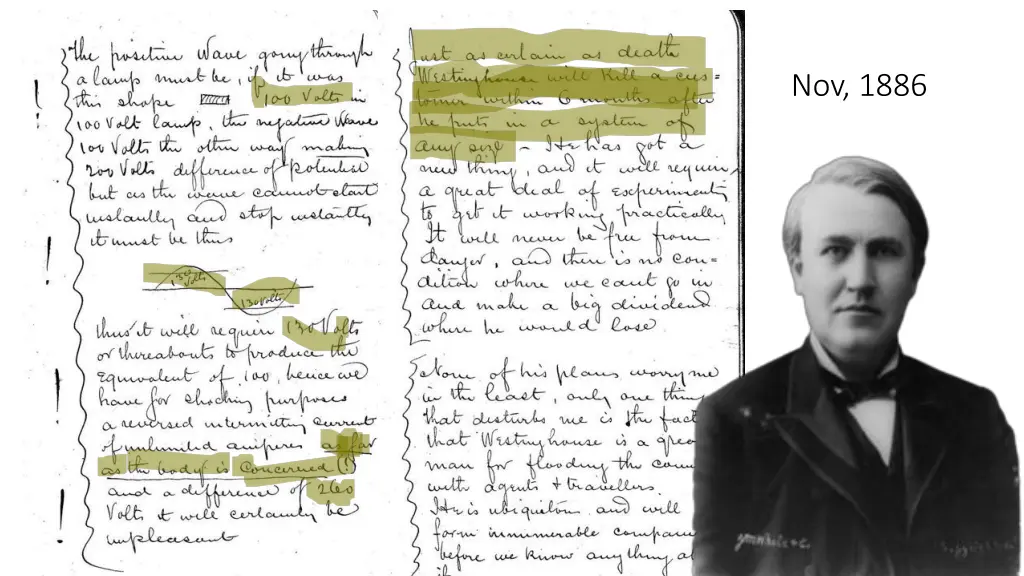 The positive Wave going through
a lamp must be, if it was
this shape 100 Volts in
100 Volt lamp, the negative Wave
100 Volts the other way making
200 Volts difference of potential
but as the wave cannot start
instantly and stop instantly
it must be thus
130 Volts
130 Volts
thus it will require 130 Volts
or thereabouts to produce the
Equivalent of 100, hence we
have for shocking purposes
a reversed intermitting current
of unlimited amperes as far
as the body is concerned (!)
and a difference of 260
Volts it will certainly be
unpleasant
Just as certain as death
Westinghouse will Kill a cus=
tomer within 6 months after
he puts in a system of
any size – He has got a
new thing, and it will require
a great deal of Experimenting
to get it working practically
It will never be free from
danger, and there is no con=
dition where we cant go in
and make a big dividend
where he would lose.
None of his plans worry me
in the least, only one thing
that disturbs me is the fact
that Westinghouse is a grea
man for flooding the coun
with agents & travellers.
He is ubiquitous and will
form innumerable companie
before we know anything a
it
Nov, 1886